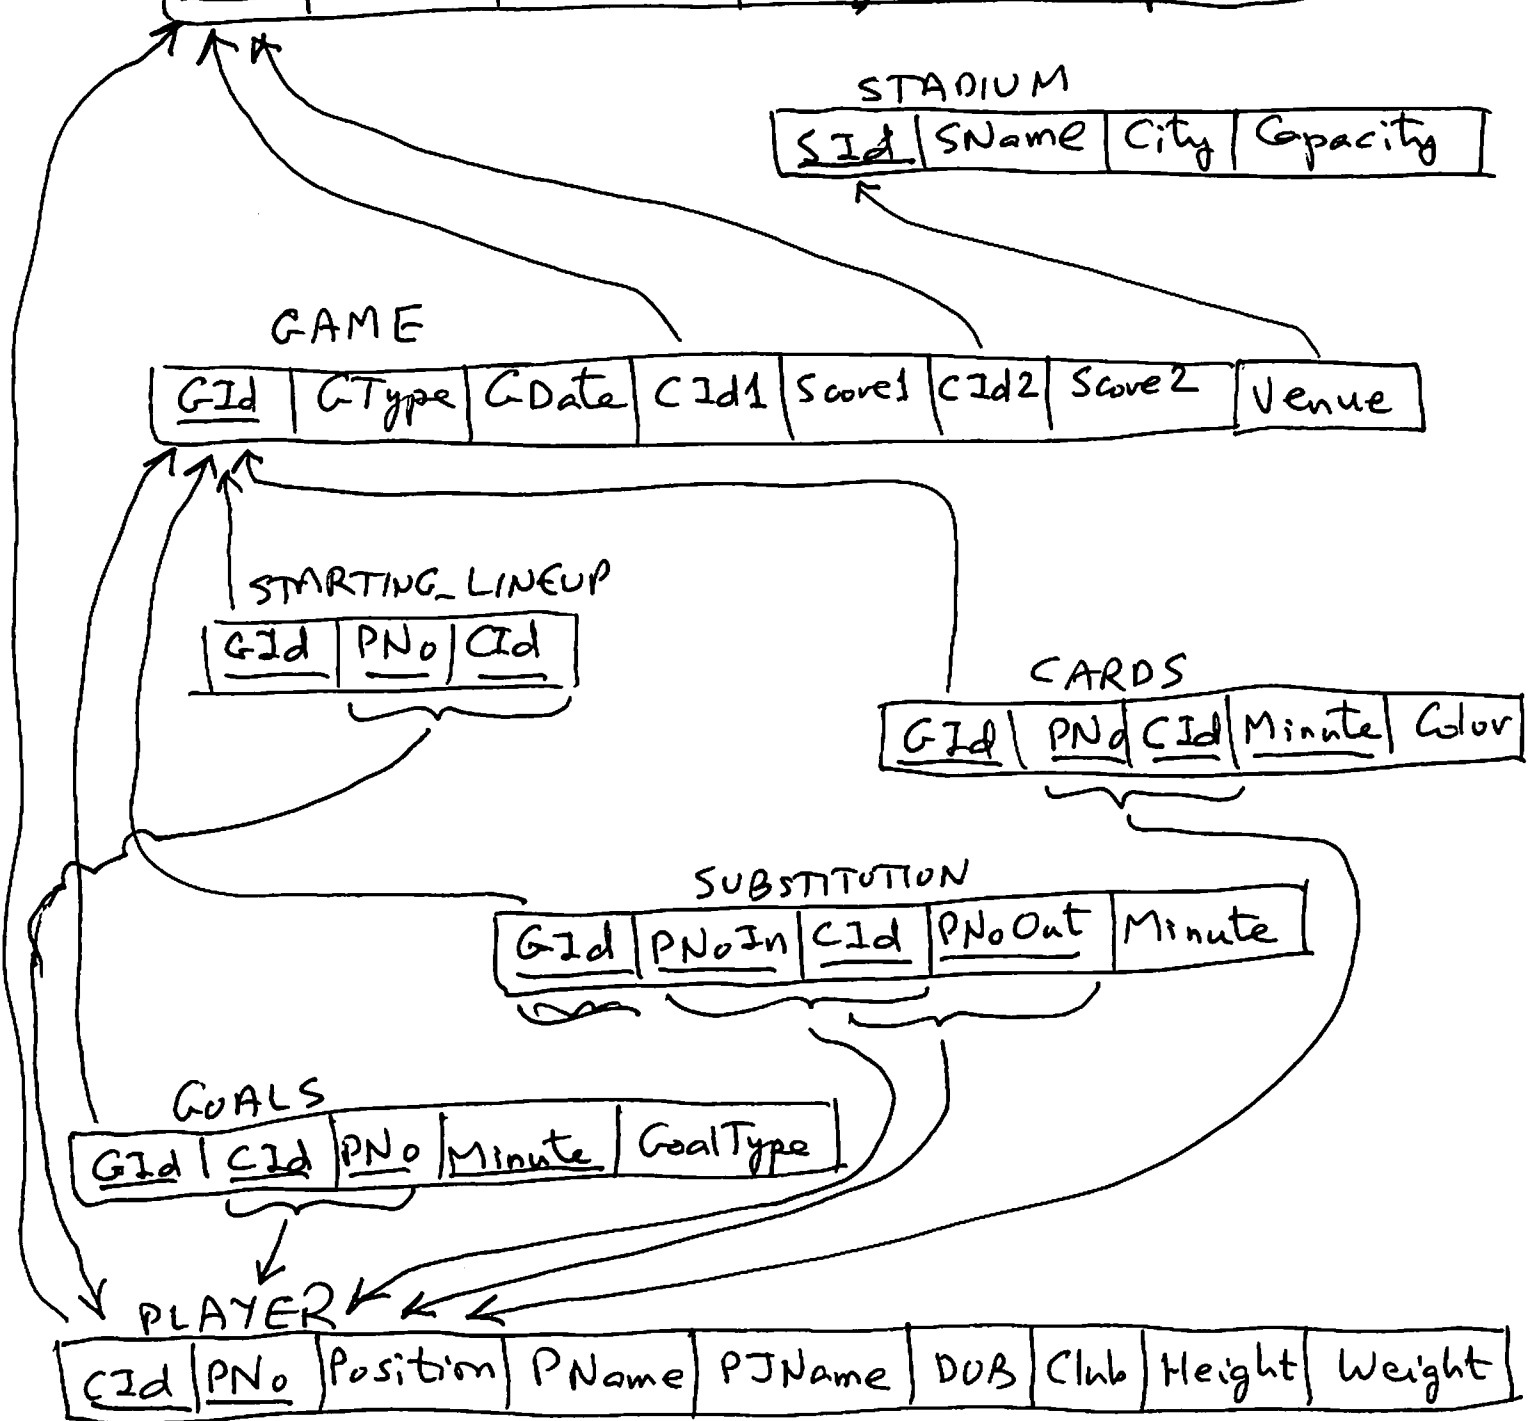 STADIUM
SId SName City Capacity
GAME
GId GType GDate CId1 Score1 CId2 Score2 Venue
STARTING_LINEUP
GId PNo CId
CARDS
GId PNo CId Minute Color
SUBSTITUTION
GId PNoIn CId PNoOut Minute
GOALS
GId CId PNo Minute GoalType
PLAYER
CId PNo Position PName PJName DOB Club Height Weight